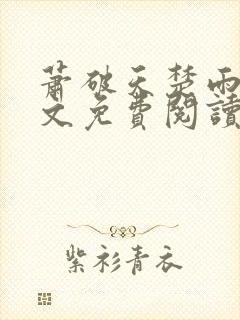 萧破天楚雨
文免費閱讀
紫衫青衣